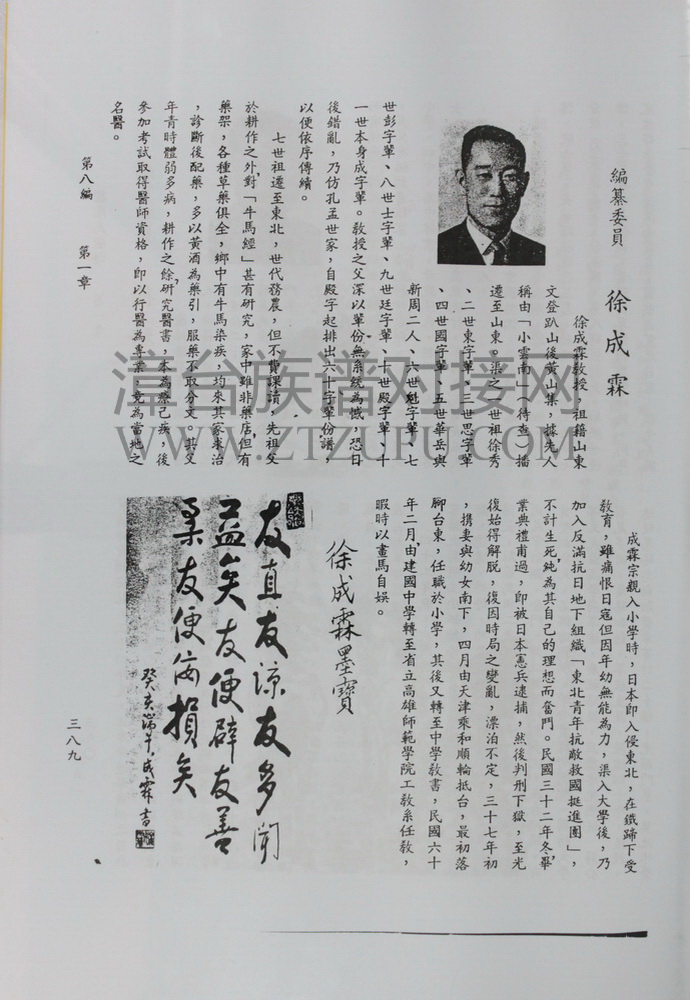 編纂委員　徐成霖
徐成霖教授，祖籍山東
文登趴山後黃山集，據先人
稱由「小雲南」（待查）播
遷至山東。渠之一世祖徐秀
、二世東字輩、三世思字輩
、四世國字輩、五世華岳與
新周二人、六世魁字輩、七
世彭字輩、八世士字輩、九世廷字輩、十世殿字輩、十
一世本身成字輩。教授之父深以輩份無系統為憾，恐日
後錯亂，乃仿孔孟世家，自殿字起排出六十字輩份譜，
以便依序傳續。
七世祖遷至東北，世代務農，但不費課讀，先祖父
於耕作之外，對「牛馬經」甚有研究，家中雖非藥店，但有
藥架，各種草藥俱全，鄉中有牛馬染疾，均來其家求治
，診斷後配藥，多以黃酒為藥引，服藥不取分文。其父
年青時體弱多病，耕作之餘，研究醫書，本為療己疾，後
參加考試取得醫師資格，即以行醫為專業，竟為當地之
名醫。
成霖宗親入小學時，日本即入侵東北，在鐵蹄下受
教育，雖痛恨日寇但因年幼無能為力，渠入大學後，乃
加入反滿抗日地下組織「東北青年抗敵救國挺進團」，
不計生死，純為其自己的理想而奮鬥。民國三十二年冬，畢
業典禮甫過，即被日本憲兵逮捕，然後判刑下獄，至光
復始得解脫，復因時局之變亂，漂泊不定，三十七年初
，携妻與幼女南下，四月由天津乘和順輪抵台，最初落
腳台東，任職於小學，其後又轉至中學教書，民國六十
年二月，由建國中學轉至省立高雄師範學院工教系任教，
暇時以畫馬自娛。
徐成霖墨寶
友直友諒友多聞
益矣友便辟友善
柔友便佞損矣
癸亥端午成霖書
第八編　第一章
三八九
漳台族谱对接网
WWW.ZTZUPU.COM